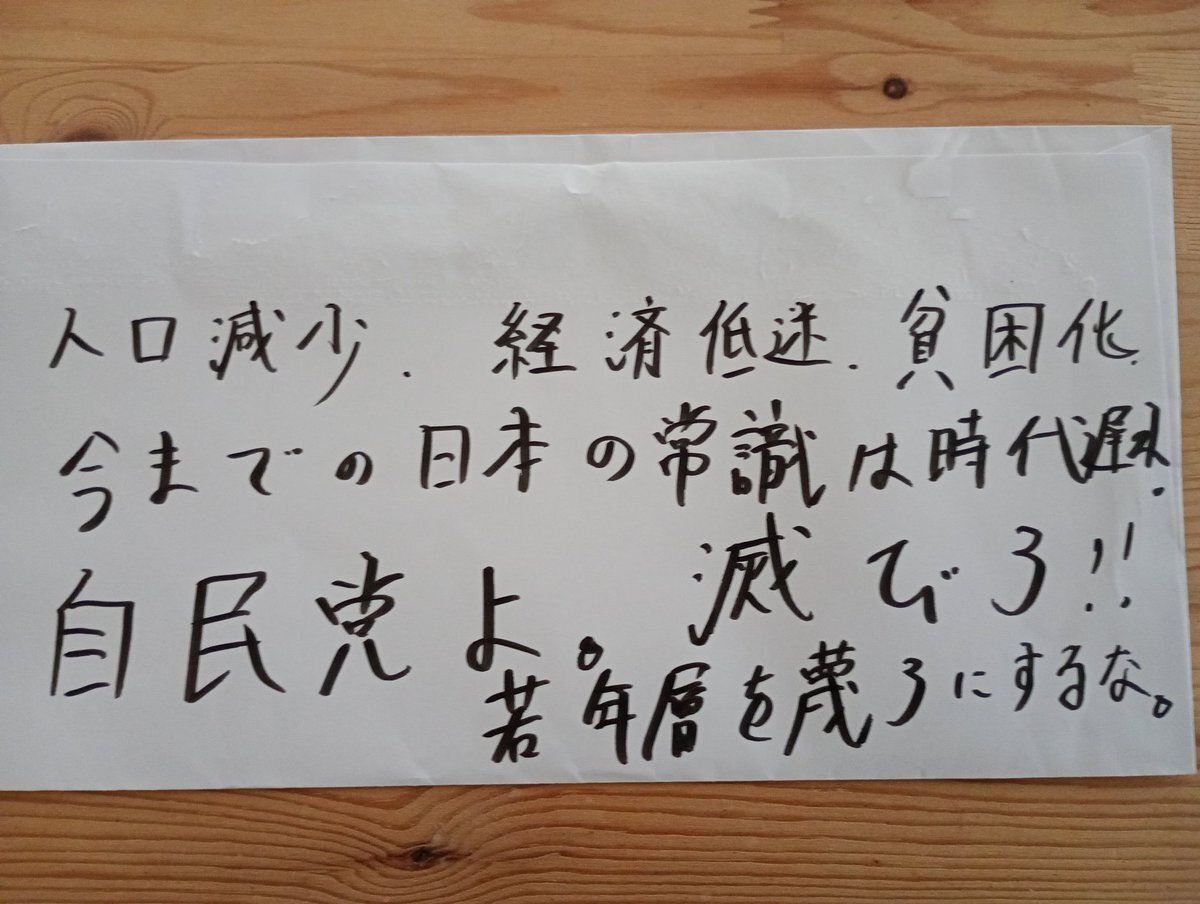 人口減少．経済低迷．貧困化．
今までの日本の常識は時代遅れ．
自民党よ。滅びろ!!
若年層を蔑ろにするな。